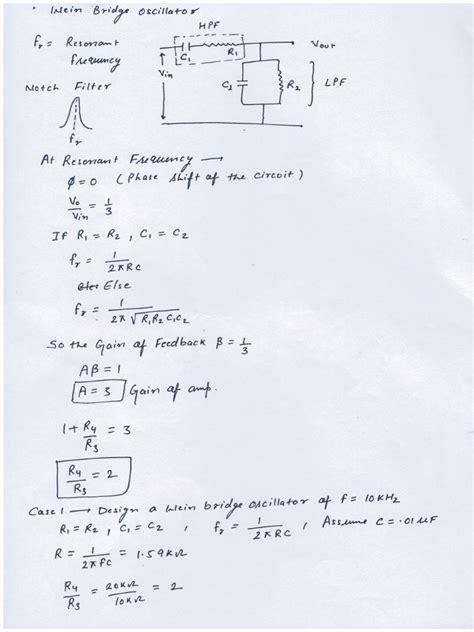 • Wein Bridge Oscillator
fr = Resonant Frequency
HPF
C1 R1
Vout
Vin
C2 R2 LPF
Notch Filter
fr
At Resonant Frequency →
ϕ = 0 (Phase shift of the circuit)
Vo/Vin = 1/3
If R1 = R2 , C1 = C2
fr = 1/2πRC
Else
fr = 1/2π√R1R2C1C2
So the Gain of Feedback β = 1/3
Aβ = 1
A = 3 Gain of amp.
1 + R4/R3 = 3
R4/R3 = 2
Case 1 → Design a Wein bridge oscillator of f = 10KHz
R1 = R2 , C1 = C2 , fr = 1/2πRC , Assume C = .01 μF
R = 1/2πfC = 1.59KΩ
R4/R3 = 20KΩ/10KΩ = 2